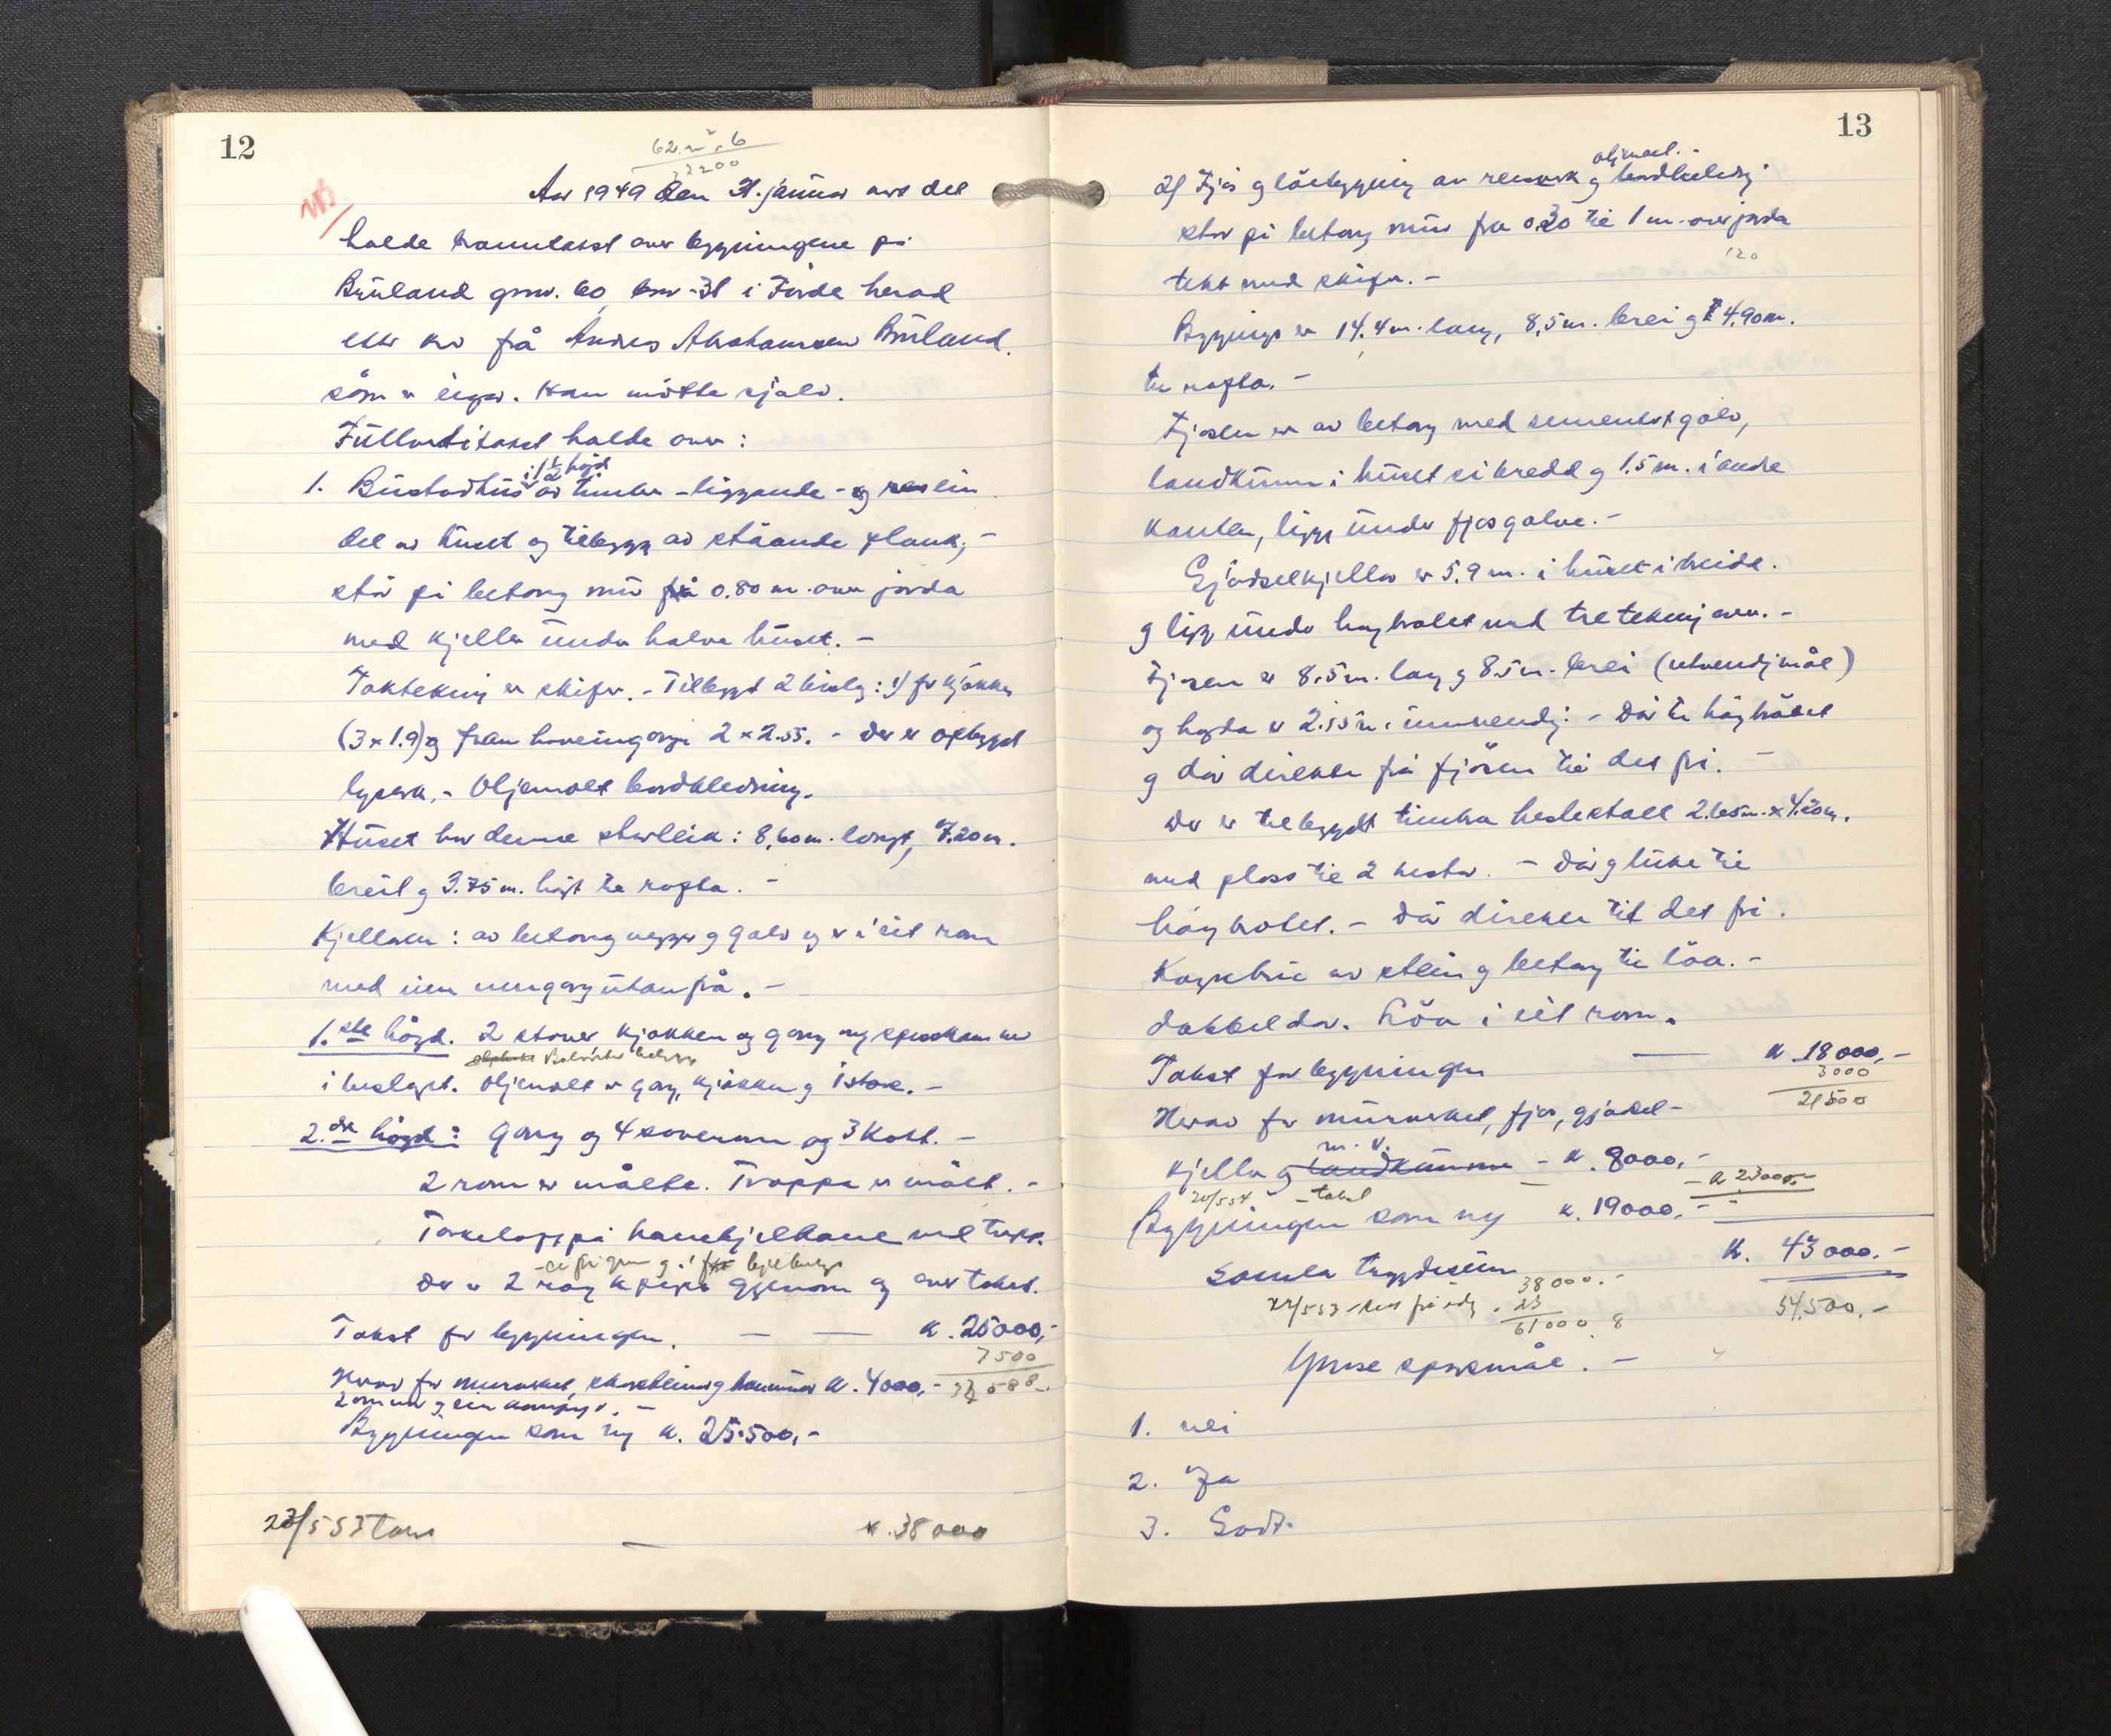 12
62 m² . 6
3200
Aar 1949 den 31. januar vart det
halde branntakst over bygningane på
Bruland gnr. 60, bnr. 31 i Førde herad
etter krav frå Andres Abrahamsen Bruland.
som er eigar. Han møtte sjølv.
Fullverditakst halde over:
i 1 1/2 høgd
1. Bustadhus av timber - liggande - og ein
del av huset og tilbygg av ståande plank, -
står på betong mur 0.80 m. over jorda
med kjellar under halve huset. -
Taktekning er skifer. - Tilbygd 2 bislag: 1) for kjøkken
(3 x 1.9) og framhoveingong 2 x 2.55. - Der er opbygd
lysark. - Oljemalt bordkledning.
Huset har denne storleik: 8,60 m. langt, 7.20 m.
breidt og 3.75 m. høgt til rafta. -
Kjellaren: av betong vegger og golv og er i eit rom
med inngong utanfrå. -
1.ste høgd. 2 stover kjøkken og gong og speiskammer
i bislaget. Oljemalt er gong, kjøkken og 1 stove. -
2.dre høgd: Gong og 4 soverom og 3 kott. -
2 rom er målte. Troppa er målt. -
Torkelopt på hanebjelkane med tropp.
Der er 2 røyk piper gjenom og over taket.
Takst for bygningen. — — k. 25000,-
7500
Herav for murarbeid, skorsteinar og brannmur k. 4000,- 32500
2 omnar og ein komfyr. -
Bygningen som ny k. 25.500,-
23/5 53 Takst — k. 38000
13
oljemalt. -
2) Fjøs og løebygning av reisverk og bordkledning
står på betong mur fra 0.30 til 1 m. over jorda
120
tekt med skifer. -
Bygningen er 14.4 m. lang, 8,5 m. brei og 4.90 m.
til rafta. -
Fjosen er av betong med sementert golv,
landkum i huset si bredd og 1.5 m. i andre
kanten, ligg under fjosgolve. -
Gjødselkjellar er 5.9 m. i huset i breide.
og ligg under høybrølet med tre tekning over. -
Fjosen er 8.5 m. lang og 8.5 m. brei (utvendig mål)
og høgda er 2.15 m. innvendig. - Dør til høybrølet
og dør direkte frå fjøsen til det fri. -
Der er tilbygdt timbra hestestall 2.65 m. x 4.20 m.
med plass til 2 hestar. - Dør og luke til
høybrølet. - Dør direkte til det fri.
Køyrebru av stein og betong til løa. -
dobbel dør. Løa i eit rom.
Takst for bygningen — k. 18000,-
3000
21500
Herav for murarbeid, fjos, gjødsel-
m. v.
kjellar og landkumme - k. 8000,-
20/5 54 - takst - k. 23000,-
Bygningen som ny k. 19000,-
Samla trygdesum k. 43000.-
38000.-
23
61000
54.500,-
Ymse spørsmål. -
1. nei
2. Ja
3. Godt.